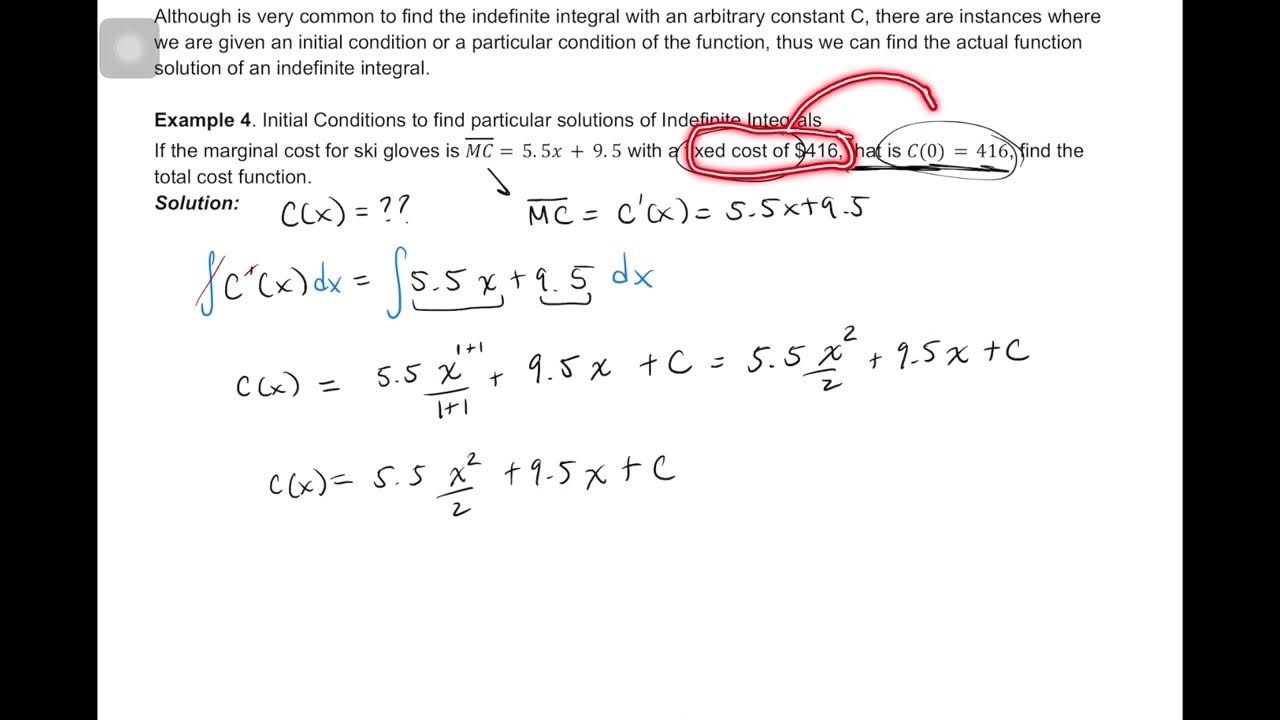 Although is very common to find the indefinite integral with an arbitrary constant C, there are instances where
we are given an initial condition or a particular condition of the function, thus we can find the actual function
solution of an indefinite integral.
Example 4. Initial Conditions to find particular solutions of Indefinite Integrals
If the marginal cost for ski gloves is \overline{MC} = 5.5x + 9.5 with a fixed cost of $416, that is C(0) = 416, find the
total cost function.
Solution: C(x) = ?? \overline{MC} = C'(x) = 5.5x+9.5
∫C'(x)dx = ∫5.5x + 9.5 dx
C(x) = 5.5 x^{1+1}/(1+1) + 9.5x + C = 5.5 x²/2 + 9.5x + C
C(x) = 5.5 x²/2 + 9.5x + C